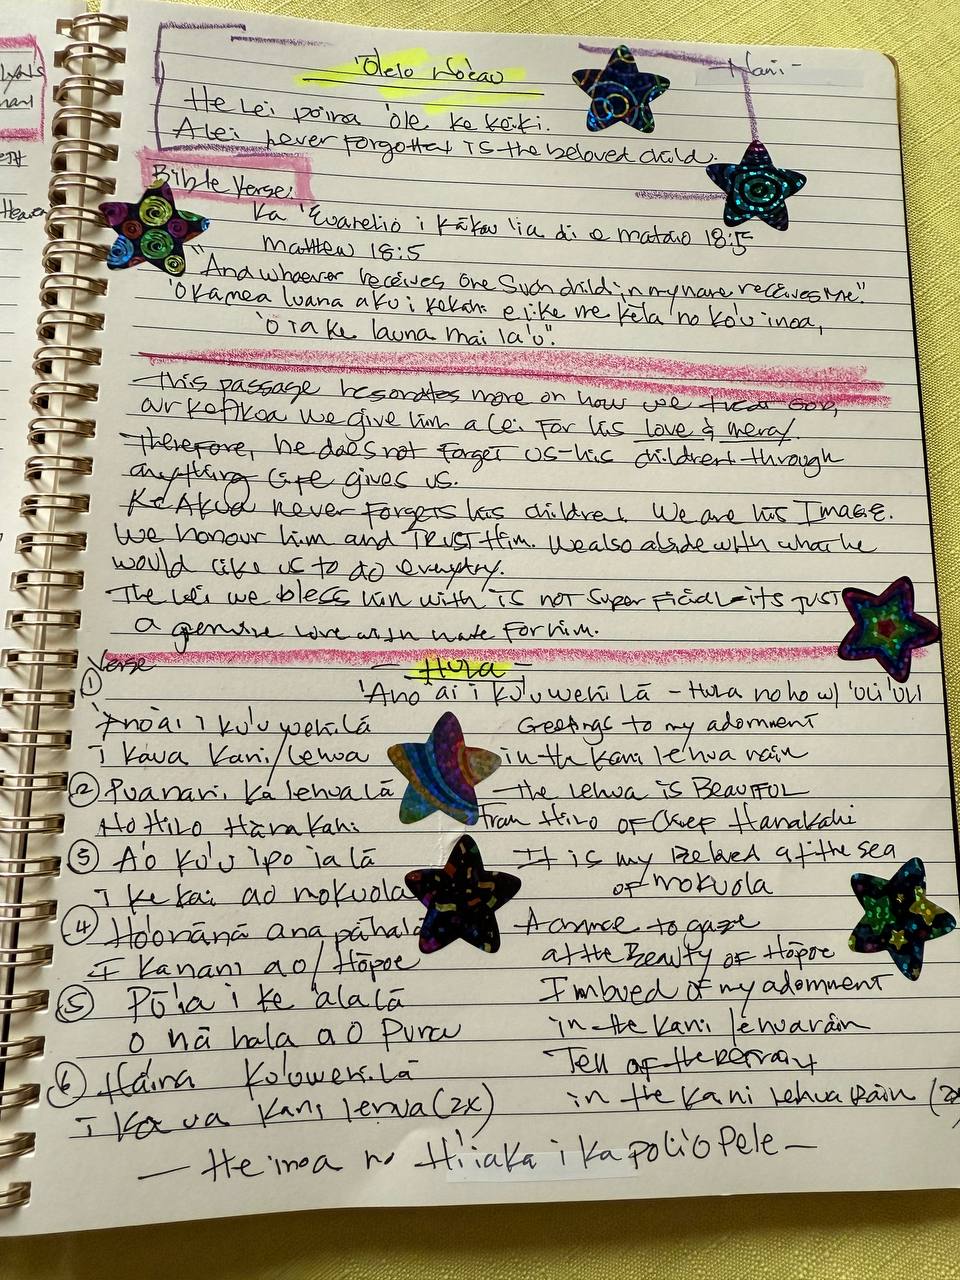 'Ōlelo No'eau
Nani-
He Lei poina 'ole ke keiki.
A lei never forgotten is the beloved child.
Bible Verse:
Ka 'Euanelio i kākau 'ia ai e Mataio 18:5
Matthew 18:5
"And whoever receives one such child in my name receives Me."
'O ka mea launa aku i kekahi e like me kēla no ko'u inoa,
'o ia ke launa mai ia'u".
This passage resonates more on how we treat God,
our Ke Akua we give him a lei for his love & mercy.
Therefore, he does not forget us-his children through
anything life gives us.
Ke Akua never forgets his children. We are his Image.
We honour him and TRUST Him. We also abide with what he
would like us to do everyday.
The lei we bless him with is not superficial-its JUST
a genuine love with for him.
Verse
- Hula -
① 'Ano'ai i ku'u wehi lā - Hula noho w/ 'uli 'uli
'Ano'ai i ku'u wehi lā Greetings to my adornment
I ka ua Kani lehua in the Kani lehua rain
② Pua nani ka lehua lā the lehua is Beautiful
No Hilo Hanakahi From Hilo of Chief Hanakahi
③ A'o ku'u ipo ia lā It is my Beloved at the sea
I ke kai ao mokuola of mokuola
④ Ho'onānā ana pāhala A chance to gaze
I ka nani a o Hōpoe at the Beauty of Hōpoe
⑤ Pō'ia i ke 'ala lā Imbued of my adornment
O nā hala a o Puna in the Kani lehua rain
⑥ Ha'ina Ku'u wehi lā Tell of the
I ka ua Kani lehua (2x) in the Kani lehua Rain (2x
- He inoa no Hi'iaka i ka poli o Pele -